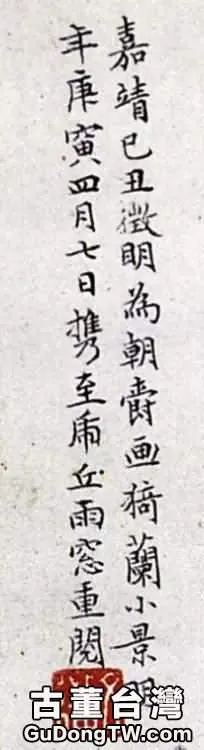 嘉靖己丑徵明為朝爵画猗蘭小景明
年庚寅四月七日携至虎丘雨窓重閱
古董台灣
GuDongTW.com